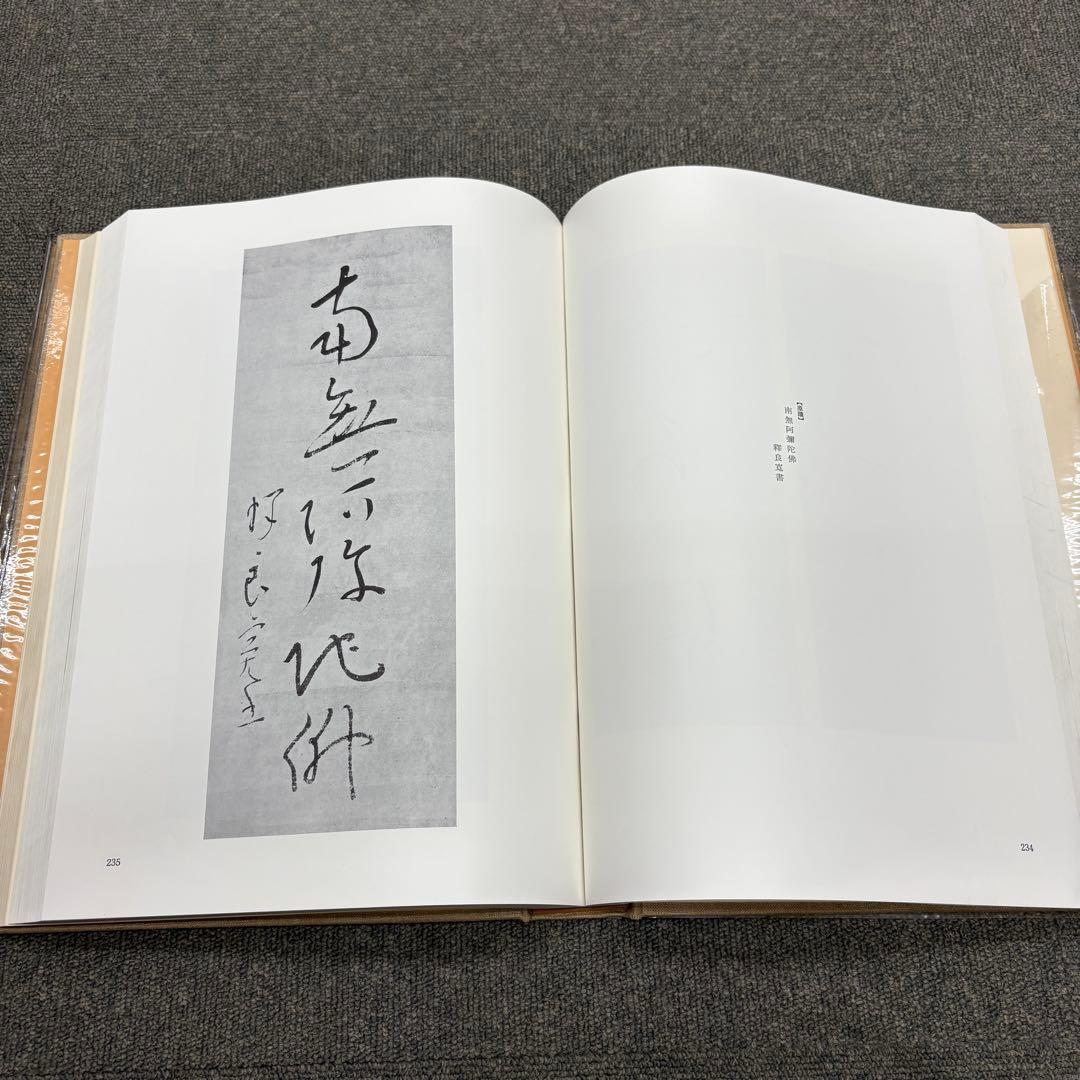 南無阿彌陀佛
釋良寛書
234
南無阿彌陀佛
釋良寛書
235